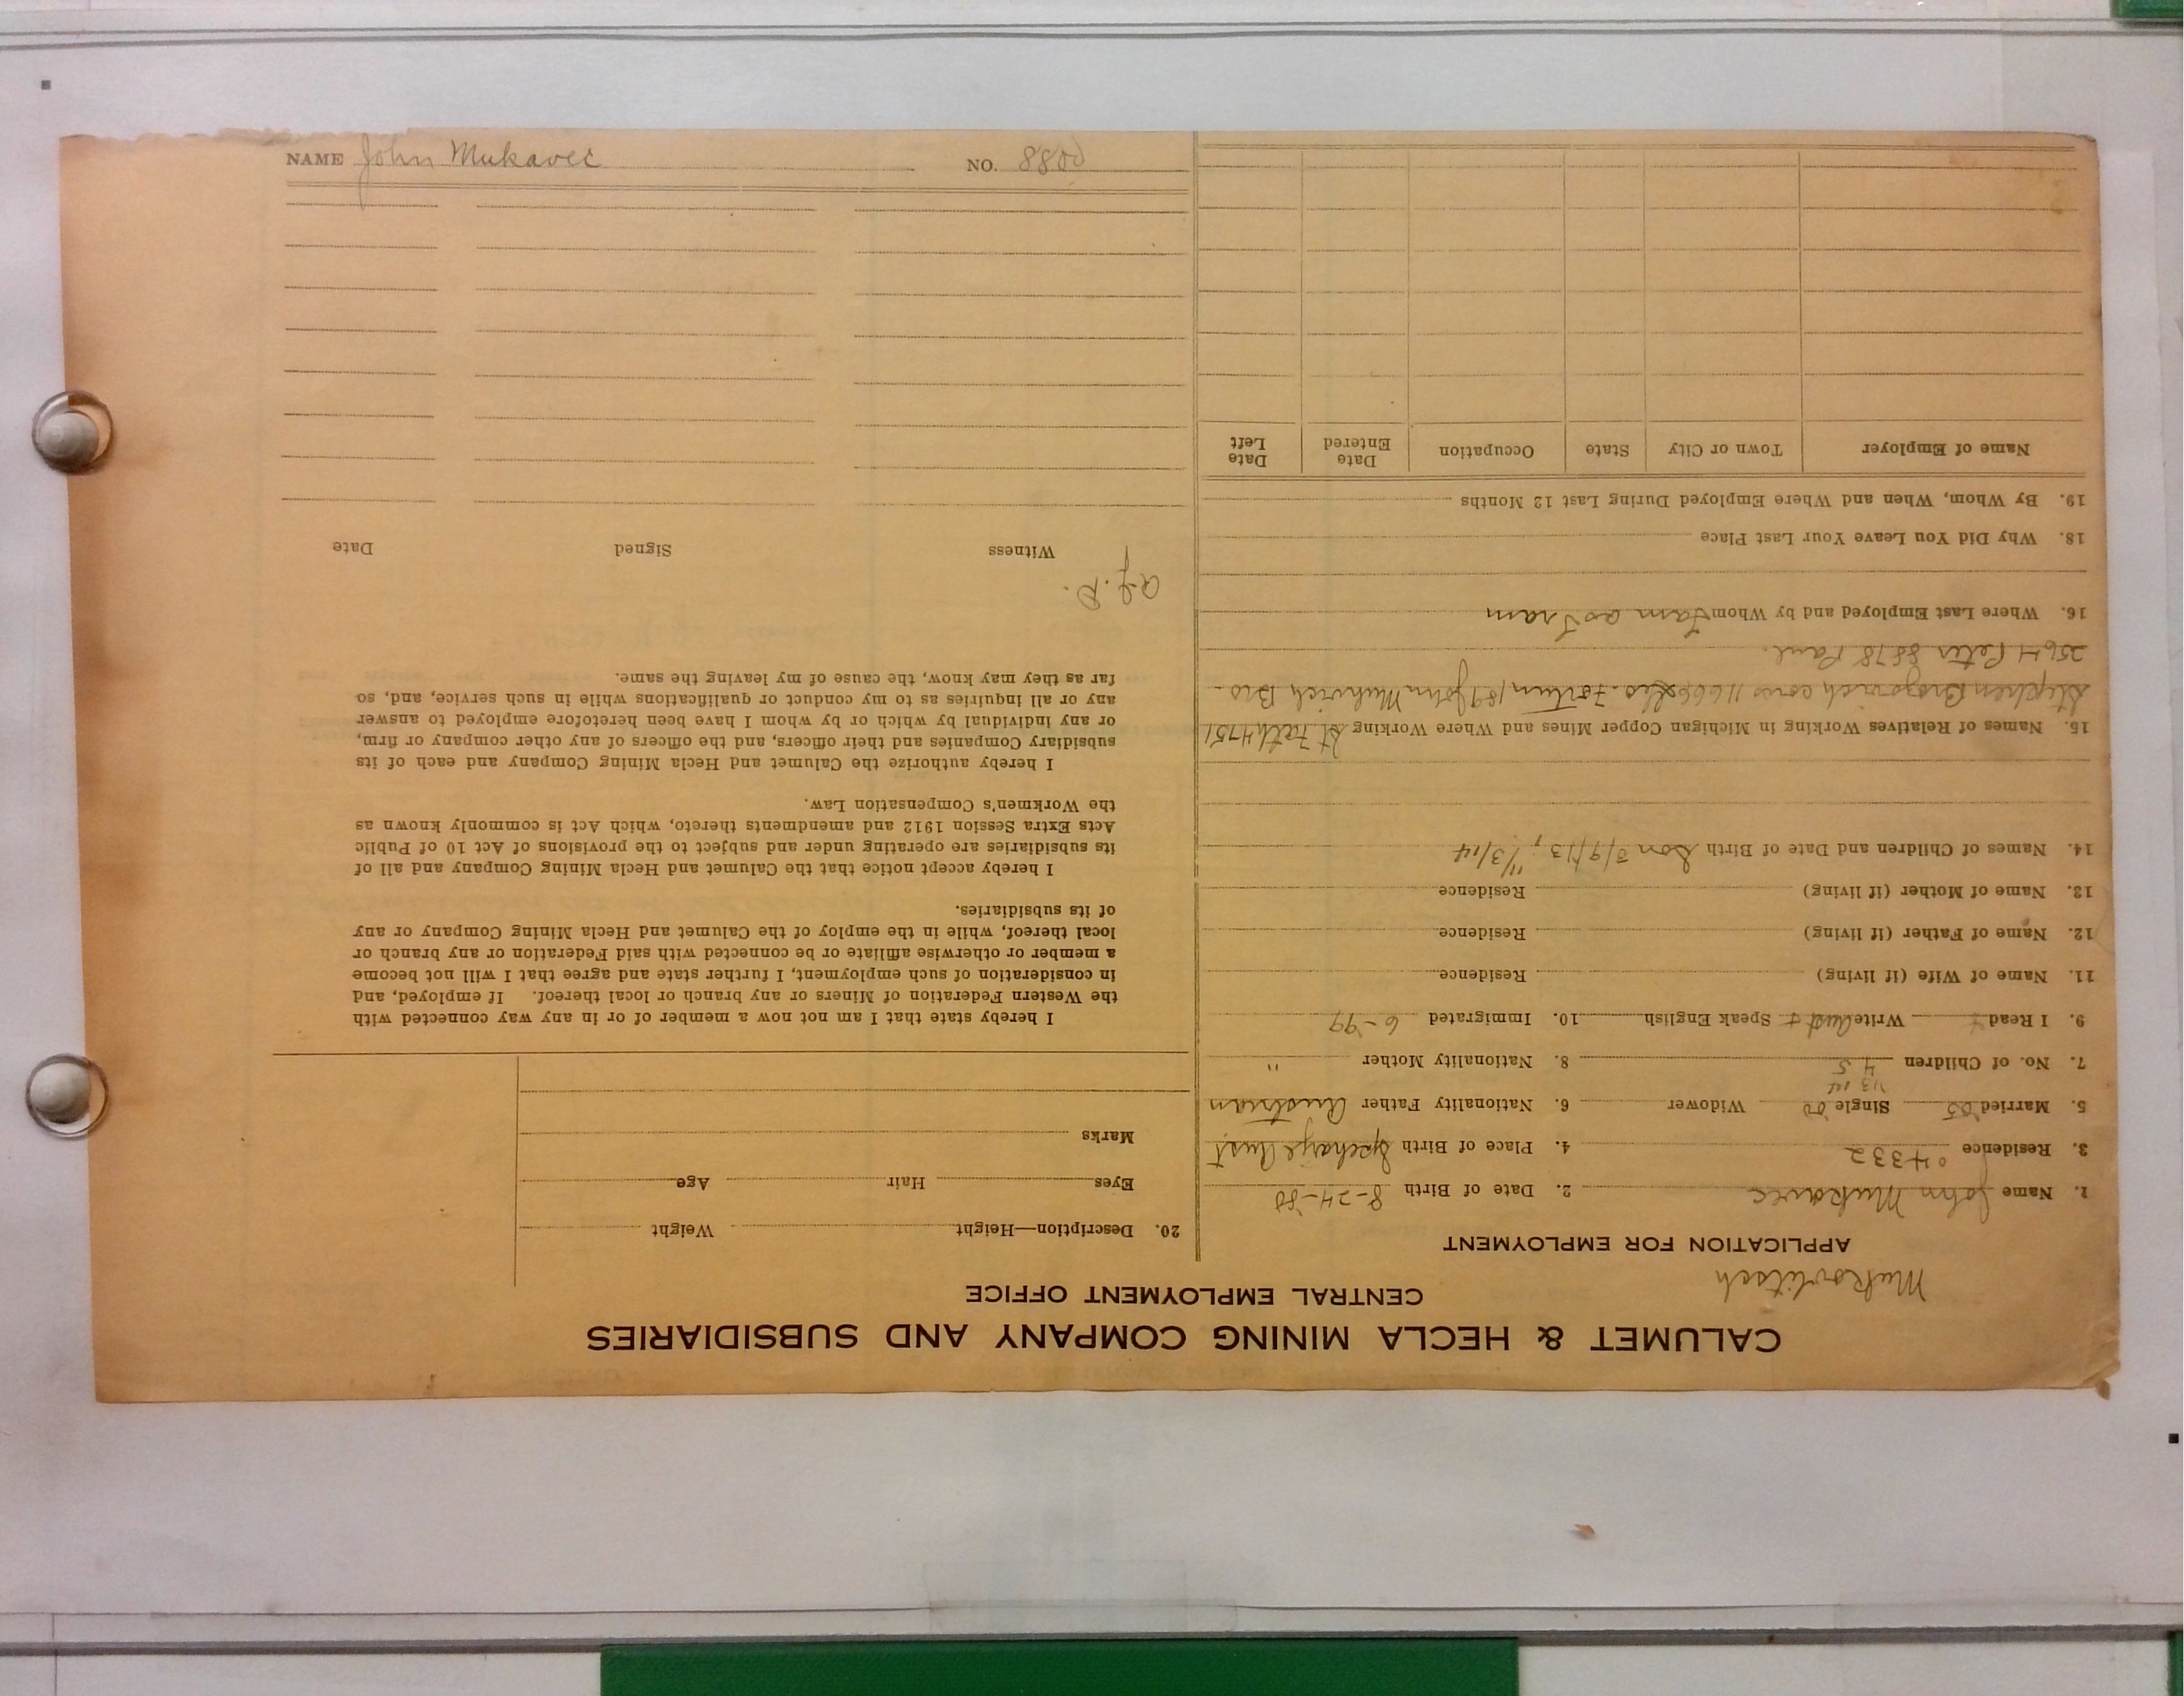 NAME John Mukavec NO. 8800
CALUMET & HECLA MINING COMPANY AND SUBSIDIARIES
CENTRAL EMPLOYMENT OFFICE
APPLICATION FOR EMPLOYMENT
1. Name John Mukavec 2. Date of Birth 8-24-80
3. Residence 4332 4. Place of Birth Aust
5. Married '05 Single Widower 6. Nationality Father Austrian
'13 '14
7. No. of Children 4 5 8. Nationality Mother "
9. I Read Write Aust + Speak English 10. Immigrated 6-99
11. Name of Wife (if living) Residence
12. Name of Father (if living) Residence
13. Name of Mother (if living) Residence
14. Names of Children and Date of Birth Son 3/9/13; 11/3/14
15. Names of Relatives Working in Michigan Copper Mines and Where Working St 4751
Stephen Brozovich cons 11666 John Mukvich Bro-
2564 Peter 8878 Paul.
16. Where Last Employed and by Whom Tam as Tram
18. Why Did You Leave Your Last Place
19. By Whom, When and Where Employed During Last 12 Months
Name of Employer Town or City State Occupation Date Entered Date Left
20. Description—Height Weight
Eyes Hair Age
Marks
I hereby state that I am not now a member of or in any way connected with
the Western Federation of Miners or any branch or local thereof. If employed, and
in consideration of such employment, I further state and agree that I will not become
a member or otherwise affiliate or be connected with said Federation or any branch or
local thereof, while in the employ of the Calumet and Hecla Mining Company or any
of its subsidiaries.
I hereby accept notice that the Calumet and Hecla Mining Company and all of
its subsidiaries are operating under and subject to the provisions of Act 10 of Public
Acts Extra Session 1912 and amendments thereto, which Act is commonly known as
the Workmen's Compensation Law.
I hereby authorize the Calumet and Hecla Mining Company and each of its
subsidiary Companies and their officers, and the officers of any other company or firm,
or any individual by which or by whom I have been heretofore employed to answer
any or all inquiries as to my conduct or qualifications while in such service, and, so
far as they may know, the cause of my leaving the same.
Witness Signed Date